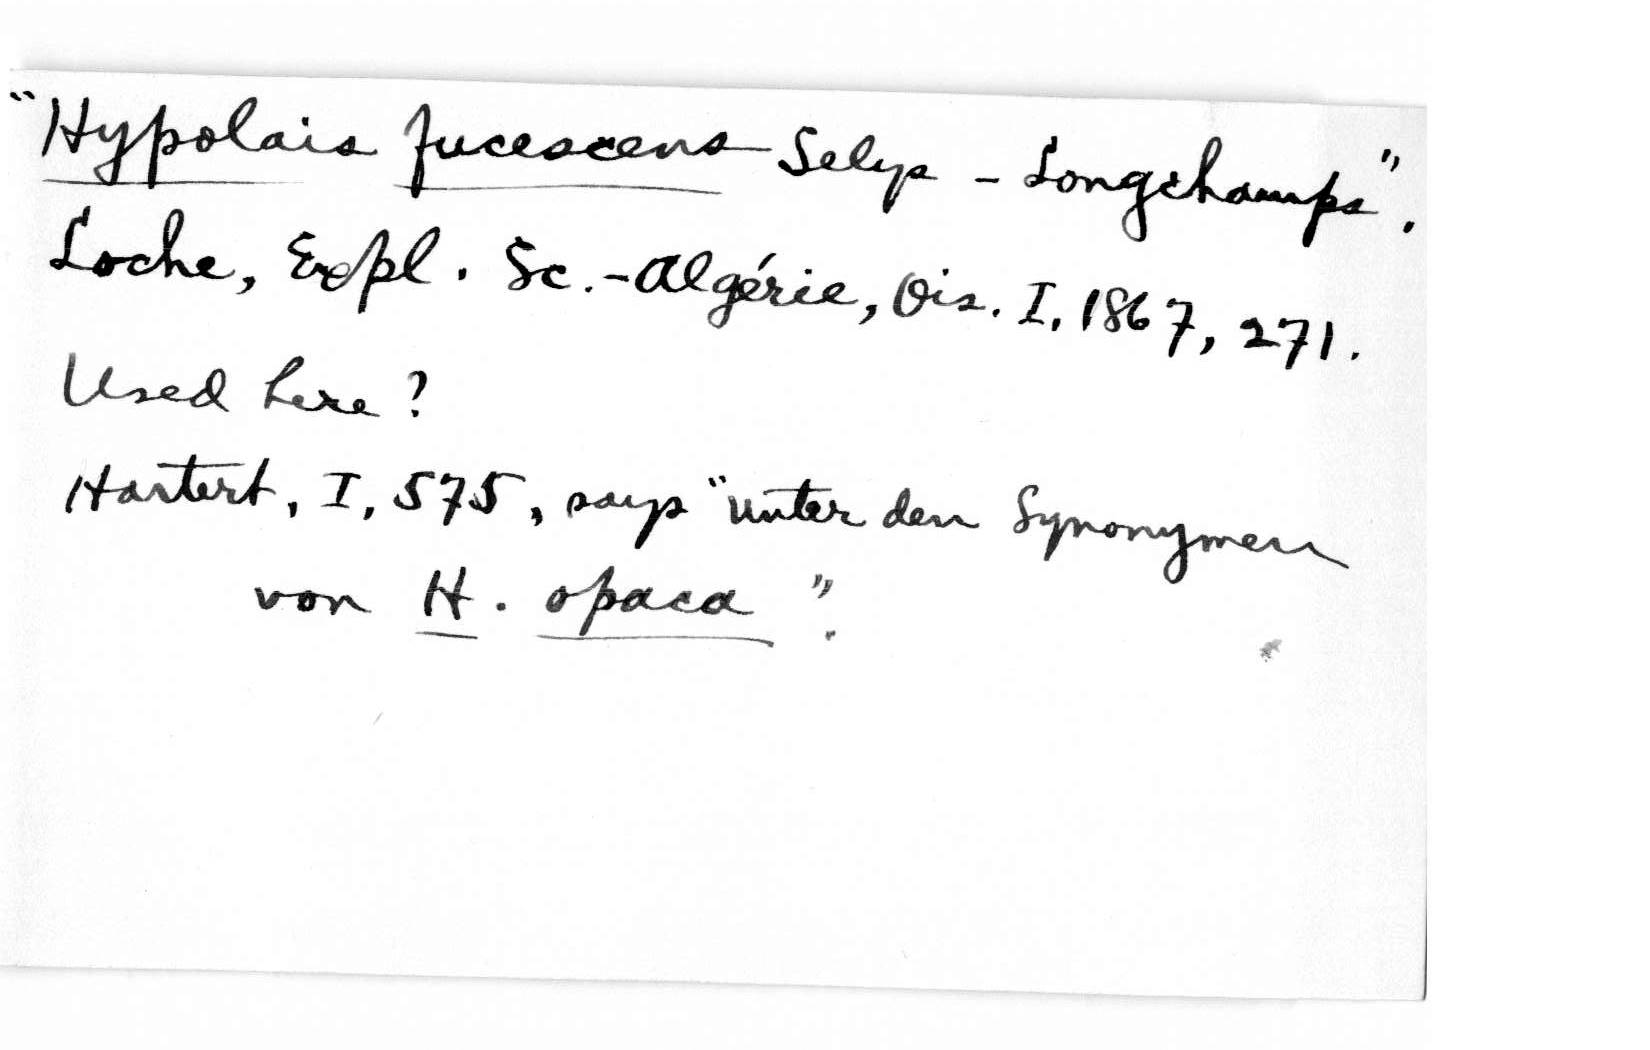 "Hypolais fucescens Selys - Longchamps".
Loche, Expl. Sc.-Algérie, Ois. I, 1867, 271.
Used here?
Hartert, I, 575, says "unter den Synonymen
von H. opaca".